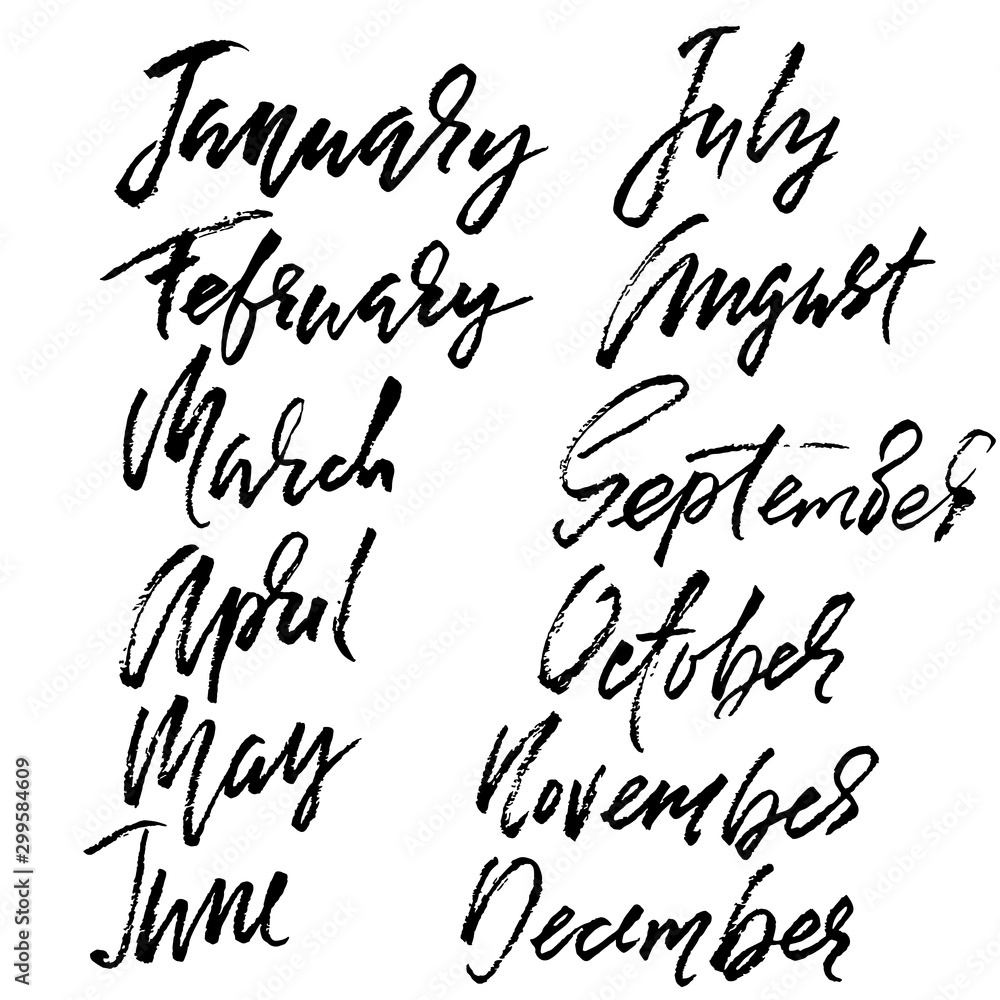 January
February
March
April
May
June
July
August
September
October
November
December
Adobe Stock | #299584609
Adobe Stock